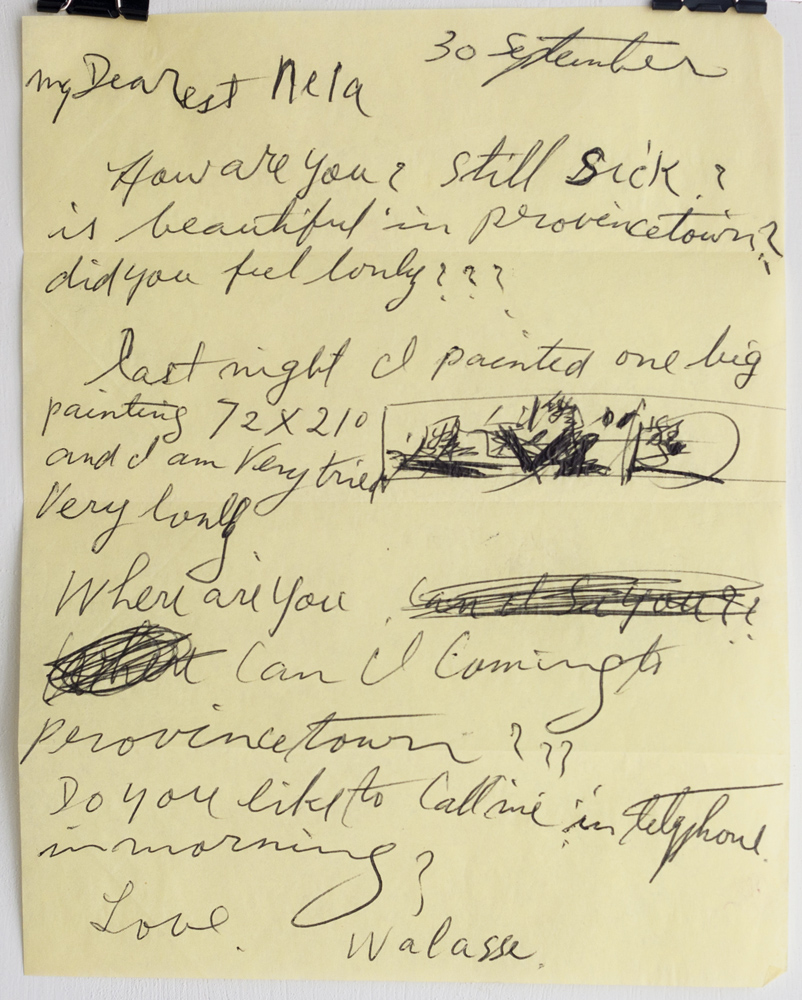 30 September
my Dearest Nela
How are you? still sick?
is beautiful in perovincetown?
did you feel lonly???
last night I painted one big
painting 72 X 210
and I am Very tried
Very lonly
Where are you Can I See you??
Can I Coming to
perovincetown ???
Do you like to Call me in telyphone
in morning?
Love.
Walasse.